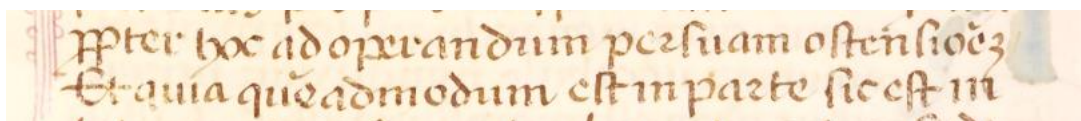 ꝓpter hoc ad operandum per suam ostensioēꝫ
Et quia quēadmodum est in parte sic est in